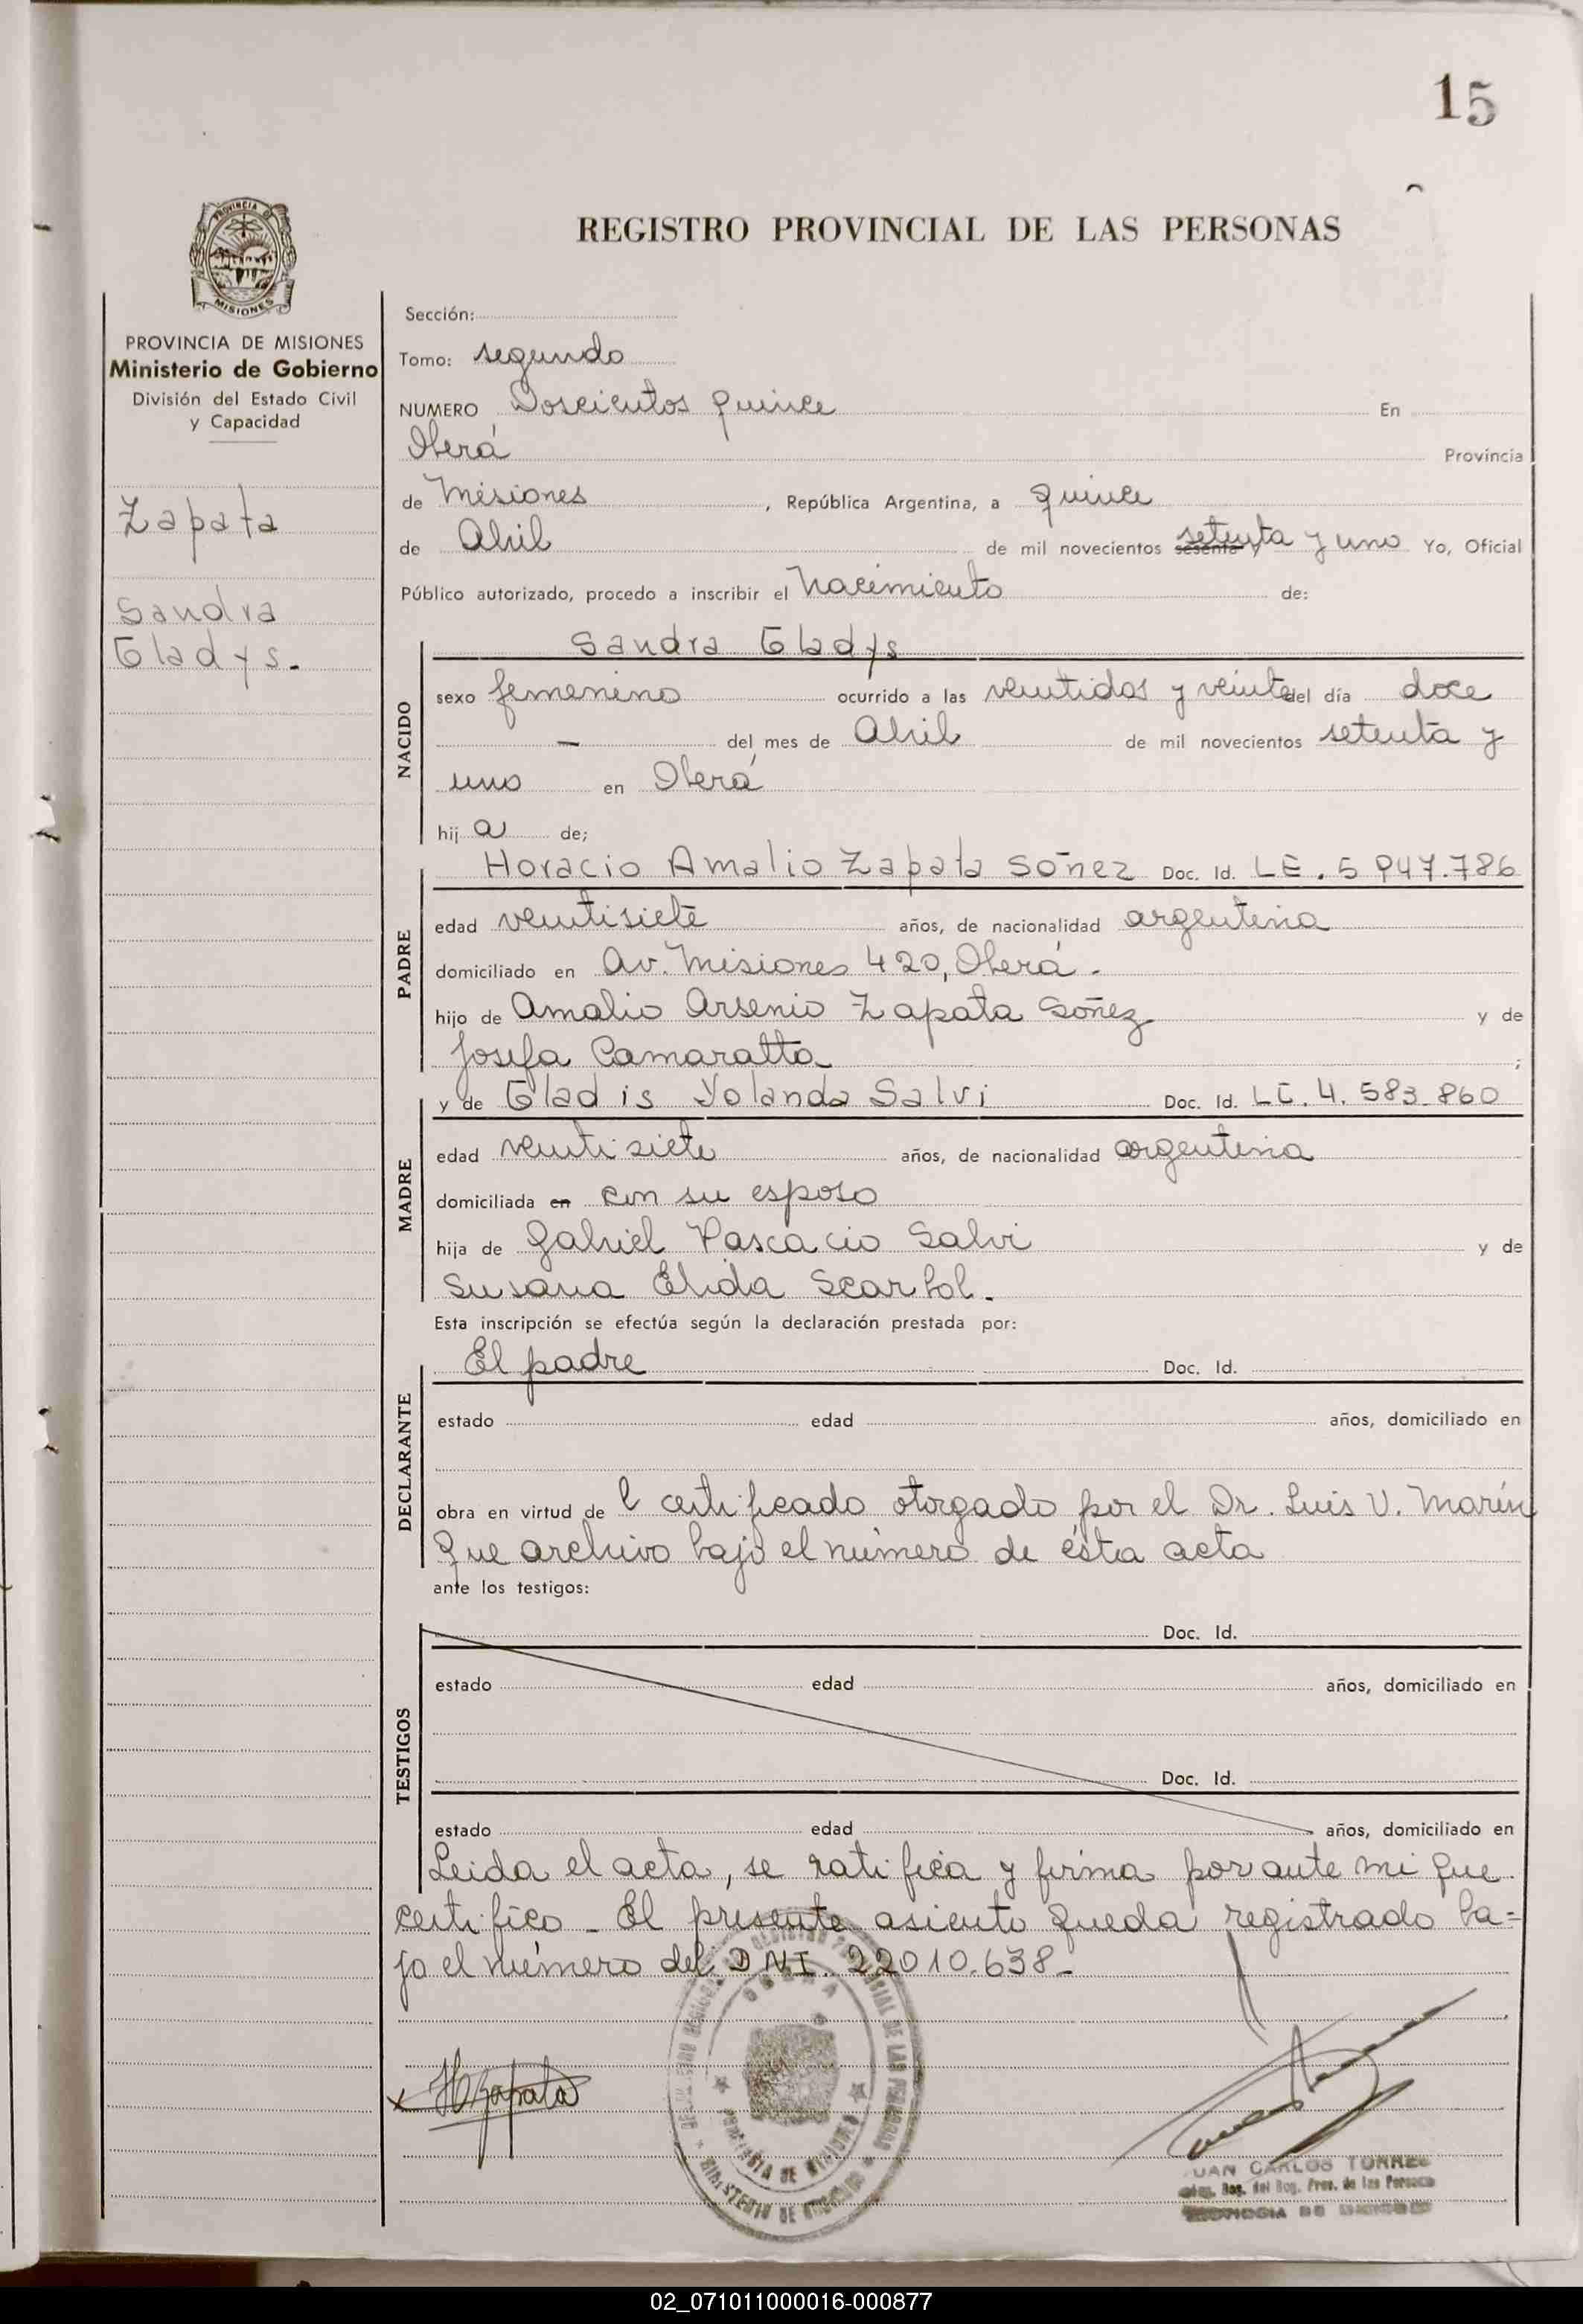 15
REGISTRO PROVINCIAL DE LAS PERSONAS
PROVINCIA DE
MISIONES
PROVINCIA DE MISIONES
Ministerio de Gobierno
División del Estado Civil
y Capacidad
Zapata
Sandra
Gladys.
Sección:
Tomo: segundo
NUMERO Doscientos quince En
Oberá Provincia
de Misiones, República Argentina, a quince
de Abril de mil novecientos sesenta y setenta y uno Yo, Oficial
Público autorizado, procedo a inscribir el Nacimiento de:
Sandra Gladys
NACIDO
sexo femenino ocurrido a las veintidos y veinte del día doce
— del mes de Abril de mil novecientos setenta y
uno en Oberá
hij a de;
Horacio Amalio Zapata Soñez Doc. Id. LE. 5 947.786
PADRE
edad veintisiete años, de nacionalidad argentina
domiciliado en Av. Misiones 420, Oberá.
hijo de Amalio Arsenio Zapata Soñez y de
Josefa Camaratta ;
y de Gladis Yolanda Salvi Doc. Id. LC. 4. 583.860
MADRE
edad veintisiete años, de nacionalidad argentina
domiciliada en con su esposo
hija de Gabriel Pascacio Salvi y de
Susana Elida Scarbol.
Esta inscripción se efectúa según la declaración prestada por:
El padre Doc. Id.
DECLARANTE
estado edad años, domiciliado en
obra en virtud de l certificado otorgado por el Dr. Luis V. Marín
que archivo bajo el número de ésta acta
ante los testigos:
Doc. Id.
TESTIGOS
estado edad años, domiciliado en
Doc. Id.
estado edad años, domiciliado en
Leida el acta, se ratifica y firma por ante mi que
certifico - El presente asiento queda registrado ba=
jo el número del DNI. 22010.638-
x HZapata
PROVINCIA DE MISIONES
MINISTERIO DE GOBIERNO
JUAN CARLOS TORRES
del Reg. Prov. de las Personas
PROVINCIA DE MISIONES
02_071011000016-000877